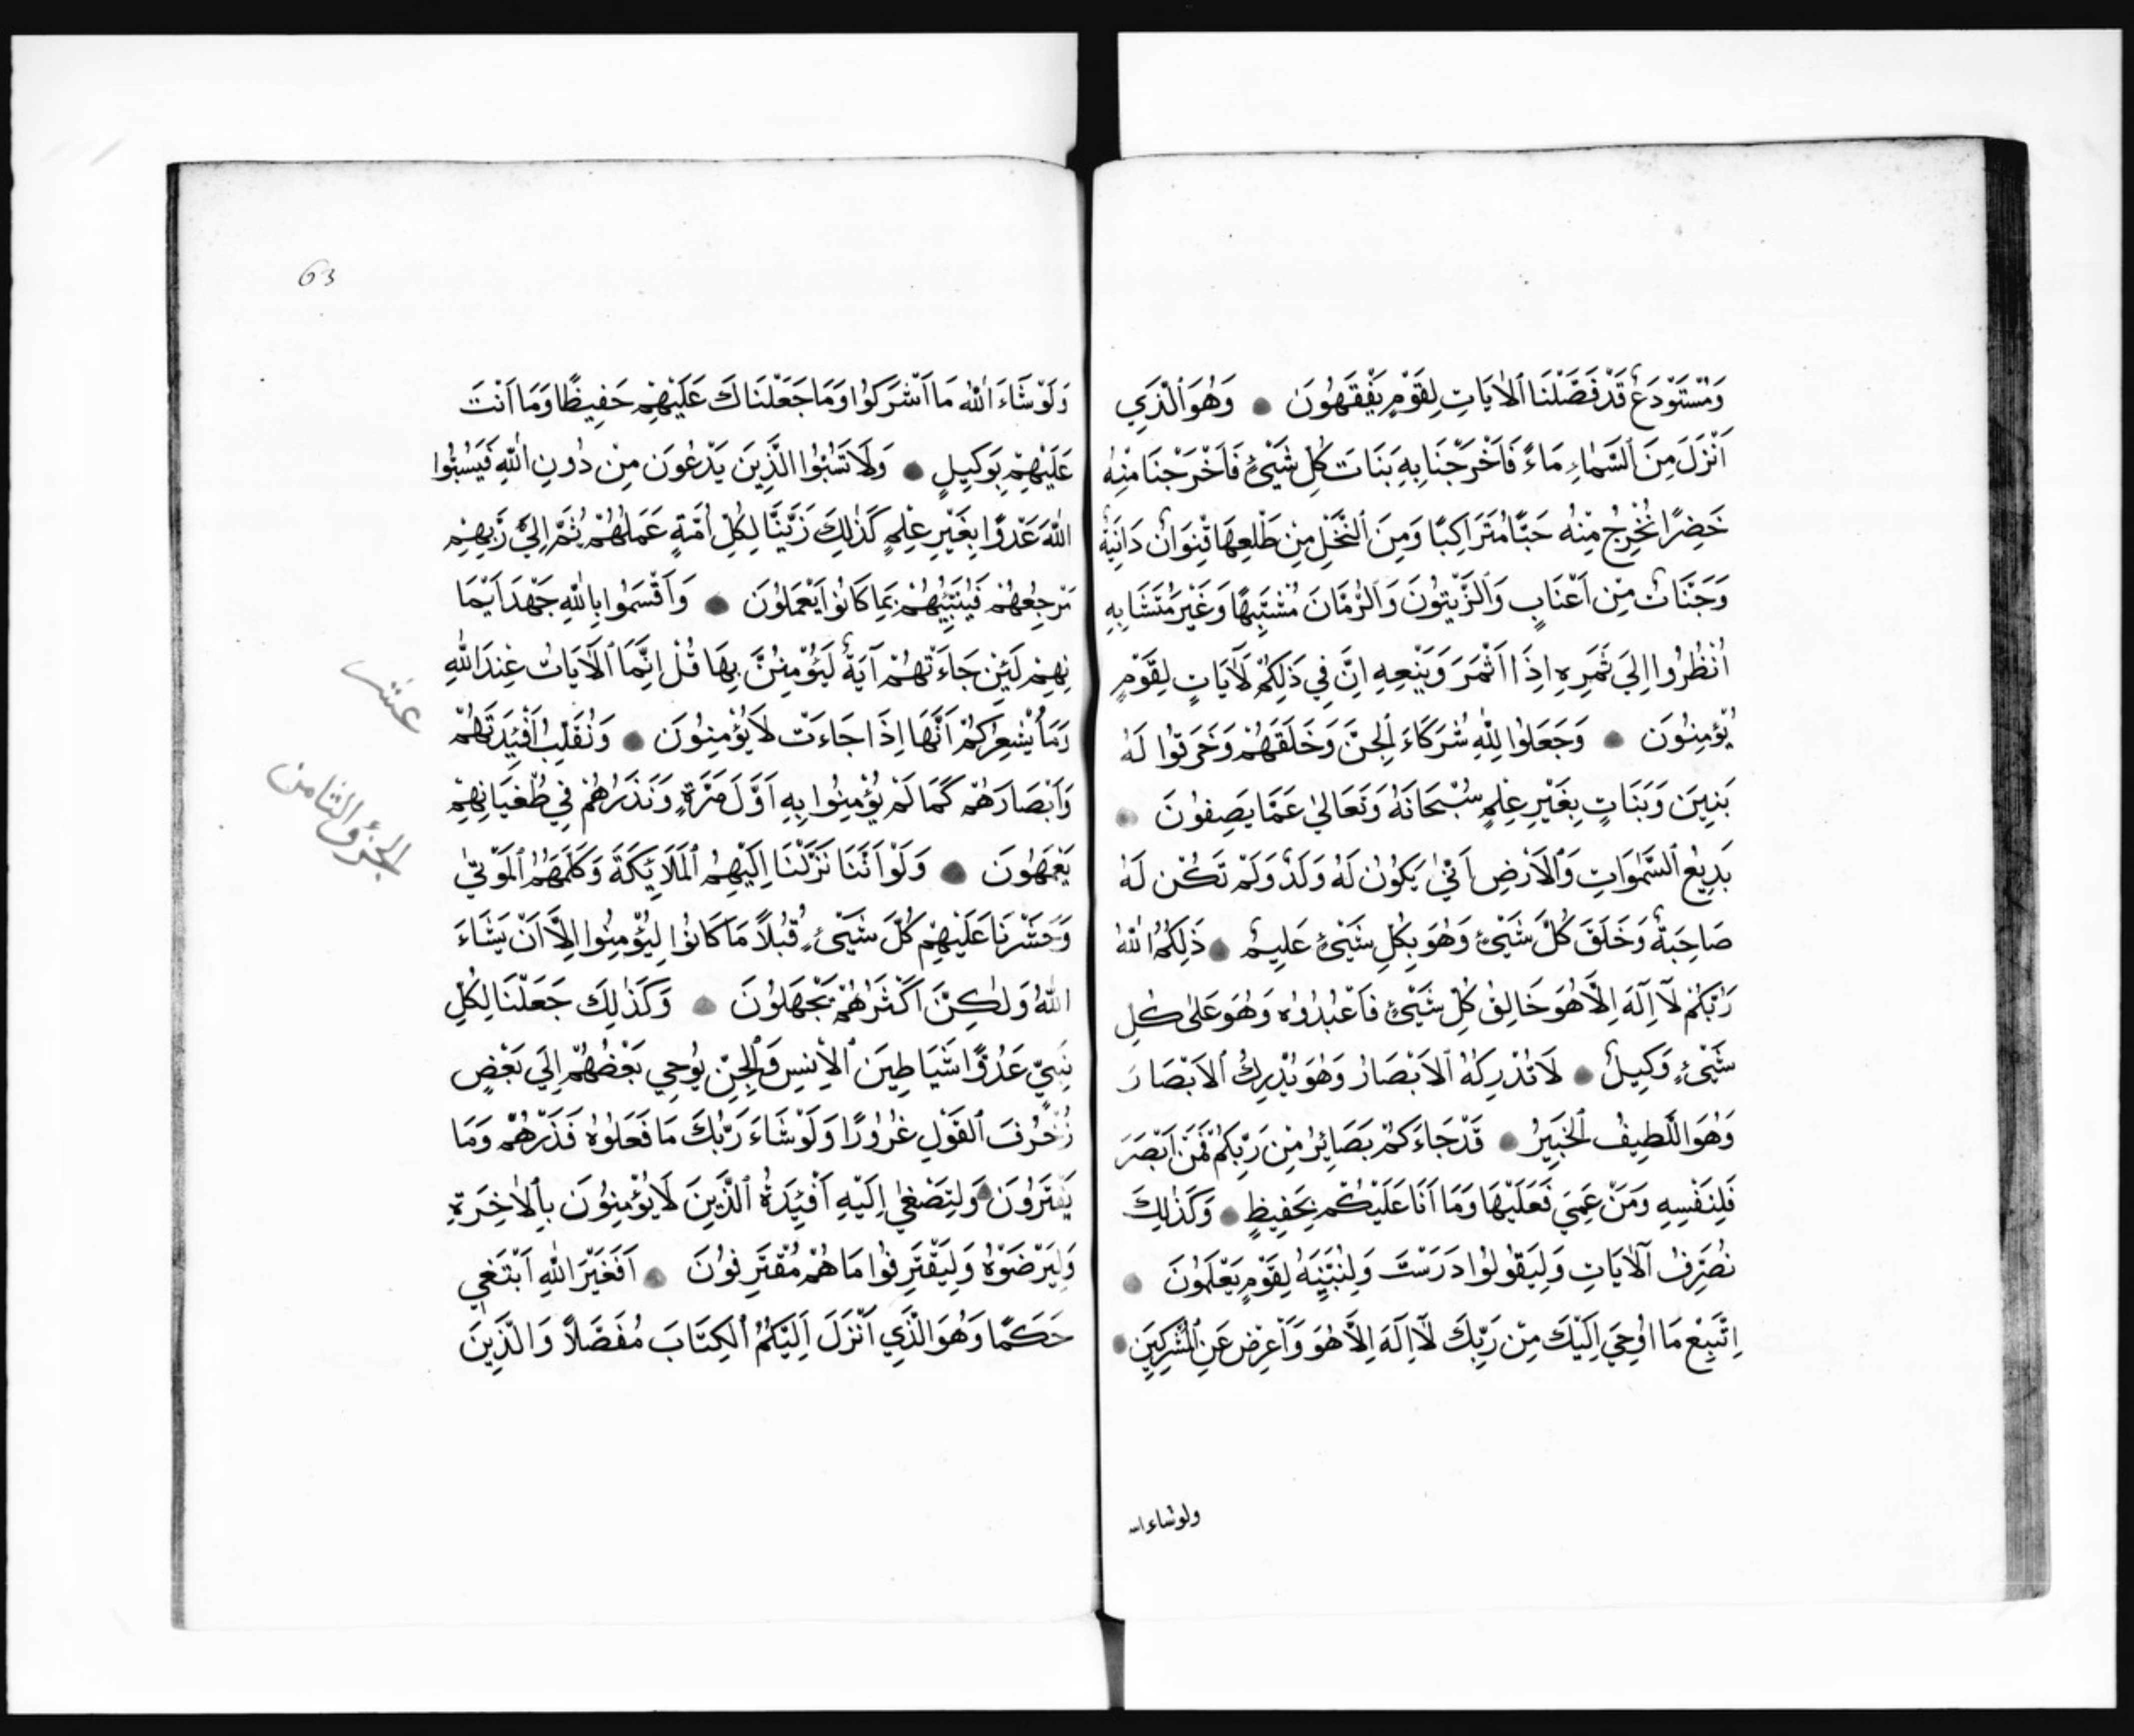 وَمُسْتَوْدَعٌ قَدْ فَصَّلْنَا ٱلْاٰيَاتِ لِقَوْمٍ يَفْقَهُونَ ● وَهُوَ ٱلَّذِي
اَنْزَلَ مِنَ ٱلسَّمَاءِ مَاءً فَاَخْرَجْنَا بِهِ نَبَاتَ كُلِّ شَيْئٍ فَاَخْرَجْنَا مِنْهُ
خَضِرًا نُخْرِجُ مِنْهُ حَبًّا مُتَرَاكِبًا وَمِنَ ٱلنَّخْلِ مِنْ طَلْعِهَا قِنْوَانٌ دَانِيَةٌ
وَجَنَّاتٌ مِنْ اَعْنَابٍ وَٱلزَّيْتُونَ وَٱلرُّمَّانَ مُشْتَبِهًا وَغَيْرَ مُتَشَابِهٍ
اُنْظُرُوا اِلَي ثَمَرِهِ اِذَا اَثْمَرَ وَيَنْعِهِ اِنَّ فِي ذَلِكُمْ لَاٰيَاتٍ لِقَوْمٍ
يُؤْمِنُونَ ● وَجَعَلُوا لِلّٰهِ شُرَكَاءَ ٱلْجِنَّ وَخَلَقَهُمْ وَخَرَقُوا لَهُ
بَنِينَ وَبَنَاتٍ بِغَيْرِ عِلْمٍ سُبْحَانَهُ وَتَعَالٰي عَمَّا يَصِفُونَ ●
بَدِيعُ ٱلسَّمٰوَاتِ وَٱلْاَرْضِ اَنّٰي يَكُونُ لَهُ وَلَدٌ وَلَمْ تَكُنْ لَهُ
صَاحِبَةٌ وَخَلَقَ كُلَّ شَيْئٍ وَهُوَ بِكُلِّ شَيْئٍ عَلِيمٌ ● ذَلِكُمُ اللّٰهُ
رَبُّكُمْ لَآ اِلَهَ اِلَّا هُوَ خَالِقُ كُلِّ شَيْئٍ فَاعْبُدُوهُ وَهُوَ عَلٰى كُلِّ
شَيْئٍ وَكِيلٌ ● لَا تُدْرِكُهُ ٱلْاَبْصَارُ وَهُوَ يُدْرِكُ ٱلْاَبْصَارَ
وَهُوَ اللَّطِيفُ ٱلْخَبِيرُ ● قَدْ جَاءَكُمْ بَصَائِرُ مِنْ رَبِّكُمْ فَمَنْ اَبْصَرَ
فَلِنَفْسِهِ وَمَنْ عَمِيَ فَعَلَيْهَا وَمَا اَنَا عَلَيْكُمْ بِحَفِيظٍ ● وَكَذٰلِكَ
نُصَرِّفُ ٱلْاٰيَاتِ وَلِيَقُولُوا دَرَسْتَ وَلِنُبَيِّنَهُ لِقَوْمٍ يَعْلَمُونَ ●
اِتَّبِعْ مَا اُوحِيَ اِلَيْكَ مِنْ رَبِّكَ لَآ اِلَهَ اِلَّا هُوَ وَاَعْرِضْ عَنِ ٱلْمُشْرِكِينَ ●
ولو شاء الله
63
وَلَوْ شَاءَ اللّٰهُ مَا اَشْرَكُوا وَمَا جَعَلْنَاكَ عَلَيْهِمْ حَفِيظًا وَمَا اَنْتَ
عَلَيْهِمْ بِوَكِيلٍ ● وَلَا تَسُبُّوا الَّذِينَ يَدْعُونَ مِنْ دُونِ اللّٰهِ فَيَسُبُّوا
اللّٰهَ عَدْوًا بِغَيْرِ عِلْمٍ كَذٰلِكَ زَيَّنَّا لِكُلِّ اُمَّةٍ عَمَلَهُمْ ثُمَّ اِلَيٰ رَبِّهِمْ
مَرْجِعُهُمْ فَيُنَبِّئُهُمْ بِمَا كَانُوا يَعْمَلُونَ ● وَاَقْسَمُوا بِاللّٰهِ جَهْدَ اَيْمَا
نِهِمْ لَئِنْ جَاءَتْهُمْ آيَةٌ لَيُؤْمِنُنَّ بِهَا قُلْ اِنَّمَا ٱلْاَيَاتُ عِنْدَ اللّٰهِ
وَمَا يُشْعِرُكُمْ اَنَّهَا اِذَا جَاءَتْ لَا يُؤْمِنُونَ ● وَنُقَلِّبُ اَفْئِدَتَهُمْ
وَاَبْصَارَهُمْ كَمَا لَمْ يُؤْمِنُوا بِهِ اَوَّلَ مَرَّةٍ وَنَذَرُهُمْ فِي طُغْيَانِهِمْ
يَعْمَهُونَ ● وَلَوْ اَنَّنَا نَزَّلْنَا اِلَيْهِمُ ٱلْمَلَائِكَةَ وَكَلَّمَهُمُ ٱلْمَوْتٰي
وَحَشَرْنَا عَلَيْهِمْ كُلَّ شَيْئٍ قُبُلًا مَا كَانُوا لِيُؤْمِنُوا اِلَّا اَنْ يَشَاءَ
اللّٰهُ وَلٰكِنَّ اَكْثَرَهُمْ يَجْهَلُونَ ● وَكَذٰلِكَ جَعَلْنَا لِكُلِّ
نَبِيٍّ عَدُوًّا شَيَاطِينَ ٱلْاِنْسِ وَٱلْجِنِّ يُوحِي بَعْضُهُمْ اِلَي بَعْضٍ
زُخْرُفَ ٱلْقَوْلِ غُرُورًا وَلَوْ شَاءَ رَبُّكَ مَا فَعَلُوهُ فَذَرْهُمْ وَمَا
يَفْتَرُونَ ● وَلِتَصْغٰي اِلَيْهِ اَفْئِدَةُ ٱلَّذِينَ لَا يُؤْمِنُونَ بِٱلْاٰخِرَةِ
وَلِيَرْضَوْهُ وَلِيَقْتَرِفُوا مَا هُمْ مُقْتَرِفُونَ ● اَفَغَيْرَ اللّٰهِ اَبْتَغِي
حَكَمًا وَهُوَ الَّذِي اَنْزَلَ اِلَيْكُمُ ٱلْكِتَابَ مُفَصَّلًا وَالَّذِينَ
عشر
الجزؤ الثامن